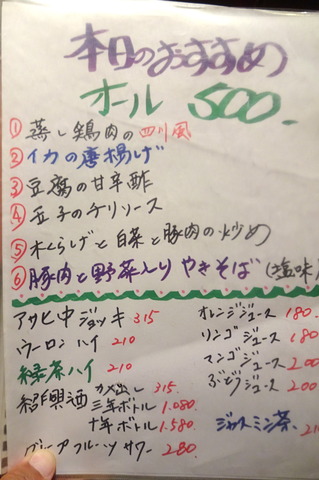 本日のおすすめ
オール 500.
① 蒸し鶏肉の四川風
② イカの唐揚げ
③ 豆腐の甘辛酢
④ 玉子のチリソース
⑤ 木くらげと白菜と豚肉の炒め
⑥ 豚肉と野菜入りやきそば(塩味
アサヒ中ジョッキ 315
ウーロンハイ 210
緑茶ハイ 210
紹興酒 カメ出し 315.
三年ボトル 1.080.
十年ボトル 1.580.
グレープフルーツサワー 280.
オレンジジュース 180.
リンゴジュース 180
マンゴジュース 200
ぶどうジュース 200
ジャスミン茶. 21